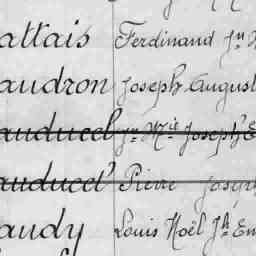 attais Ferdinand Jn
audron Joseph August
auducel Jn Mie Joseph E
auducel Pierre Joseph
audy Louis Noël Jh Em